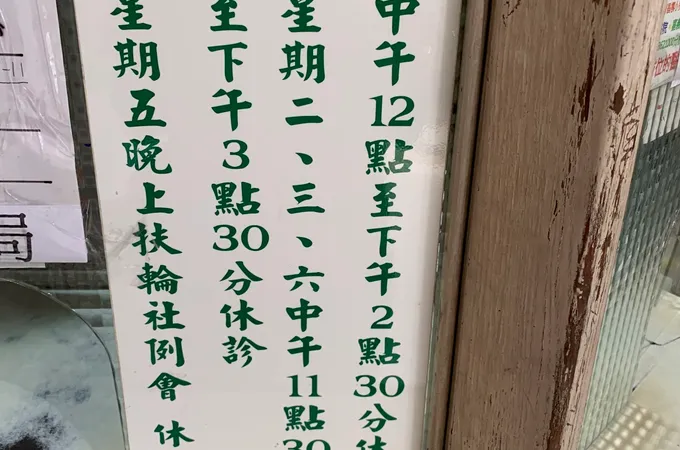 中午12點至下午2點30分休
星期二、三、六中午11點30
至下午3點30分休診
星期五晚上扶輪社例會 休
局